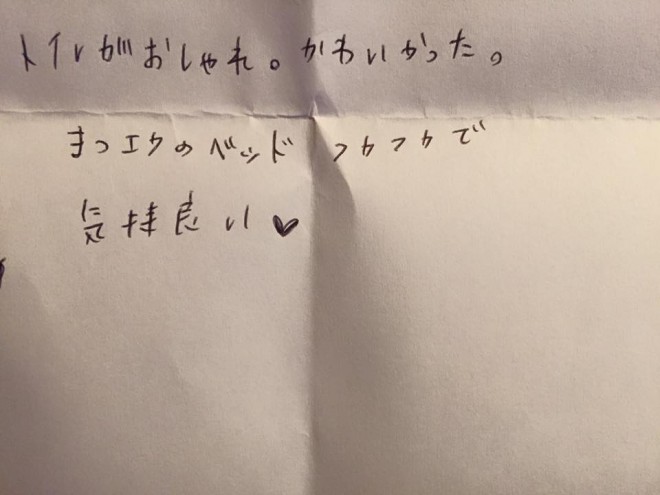 トイレがおしゃれ。かわいかった。
まつエクのベッド フカフカで
気持良い♥